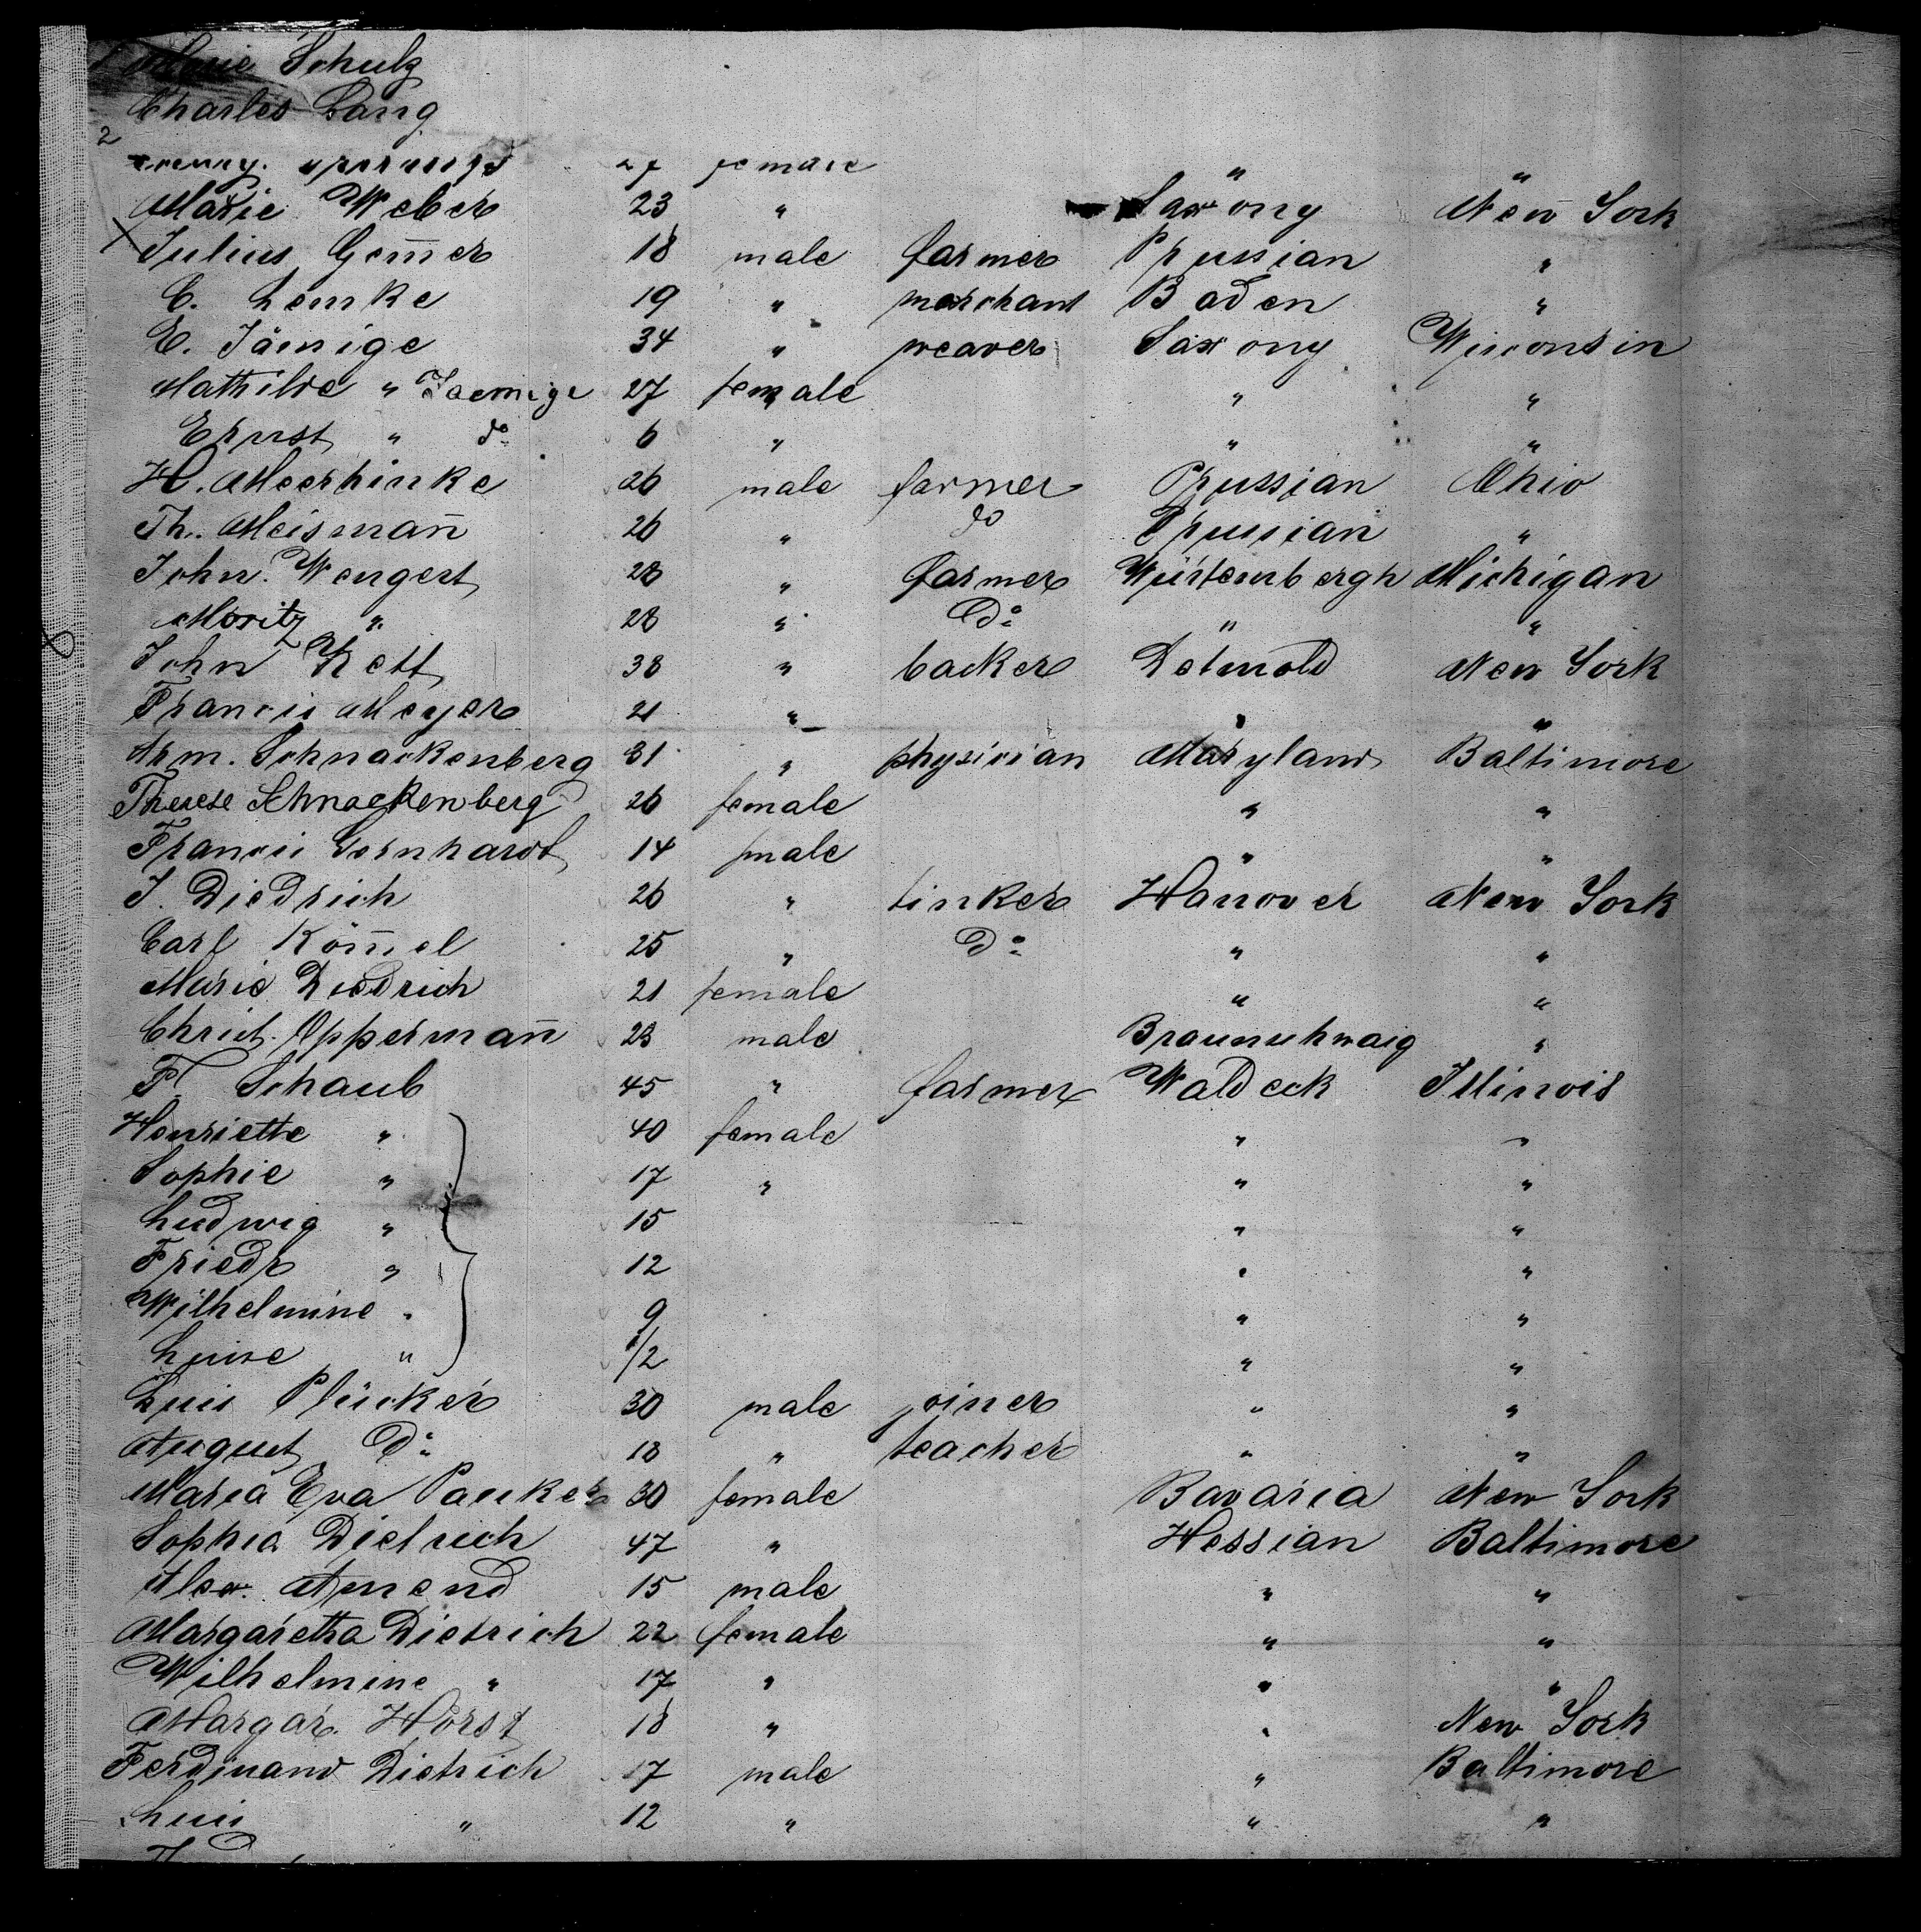 1 Marie Schulz
Charles Lang
2
27 female " "
Marie Weber 23 " Saxony New York
Julius Gem̅er 18 male farmer Prussian "
C. Lemke 19 " marchant Baden "
E. Jämige 34 " weaver Saxony Wisconsin
Mathilde " Jaemige 27 female " "
Ernst " do 6 " " "
H. Meerhinke 26 male farmer Prussian Ohio
Th. Meisman̅ 26 " do Prussian "
John Wengert 28 " farmer Würtembergh Michigan
Moritz " 28 " Do " "
John Kett 38 " backer Detmold New York
Francis Meyer 21 " " "
Arm. Schnackenberg 31 " physician Maryland Baltimore
Therese Schnackenberg 26 female " "
Francis Gernhardt 14 male " "
J. Diedrich 26 " tinker Hanover New York
Carl Köm̅el 25 " Do " "
Marie Diedrich 21 female " "
Christ. Opperman̅ 23 male Braunschwaig "
F. Schaub 45 " farmer Waldeck Illinois
Henriette " 40 female " "
Sophie " 17 " " "
Ludwig " 15 " "
Friedr " 12 " "
Wilhelmine " 9 " "
Luise " 1/2 " "
Luis Plücker 30 male joiner " "
August Do 18 " teacher " "
Maria Eva Pauker 30 female Bavaria New York
Sophia Dietrich 47 " Hessian Baltimore
Alex. Amend 15 male " "
Margaretha Dietrich 22 female " "
Wilhelmine " 17 " " "
Margar. Horst 18 " " New York
Ferdinand Dietrich 17 male " Baltimore
Luis " 12 " " "
8